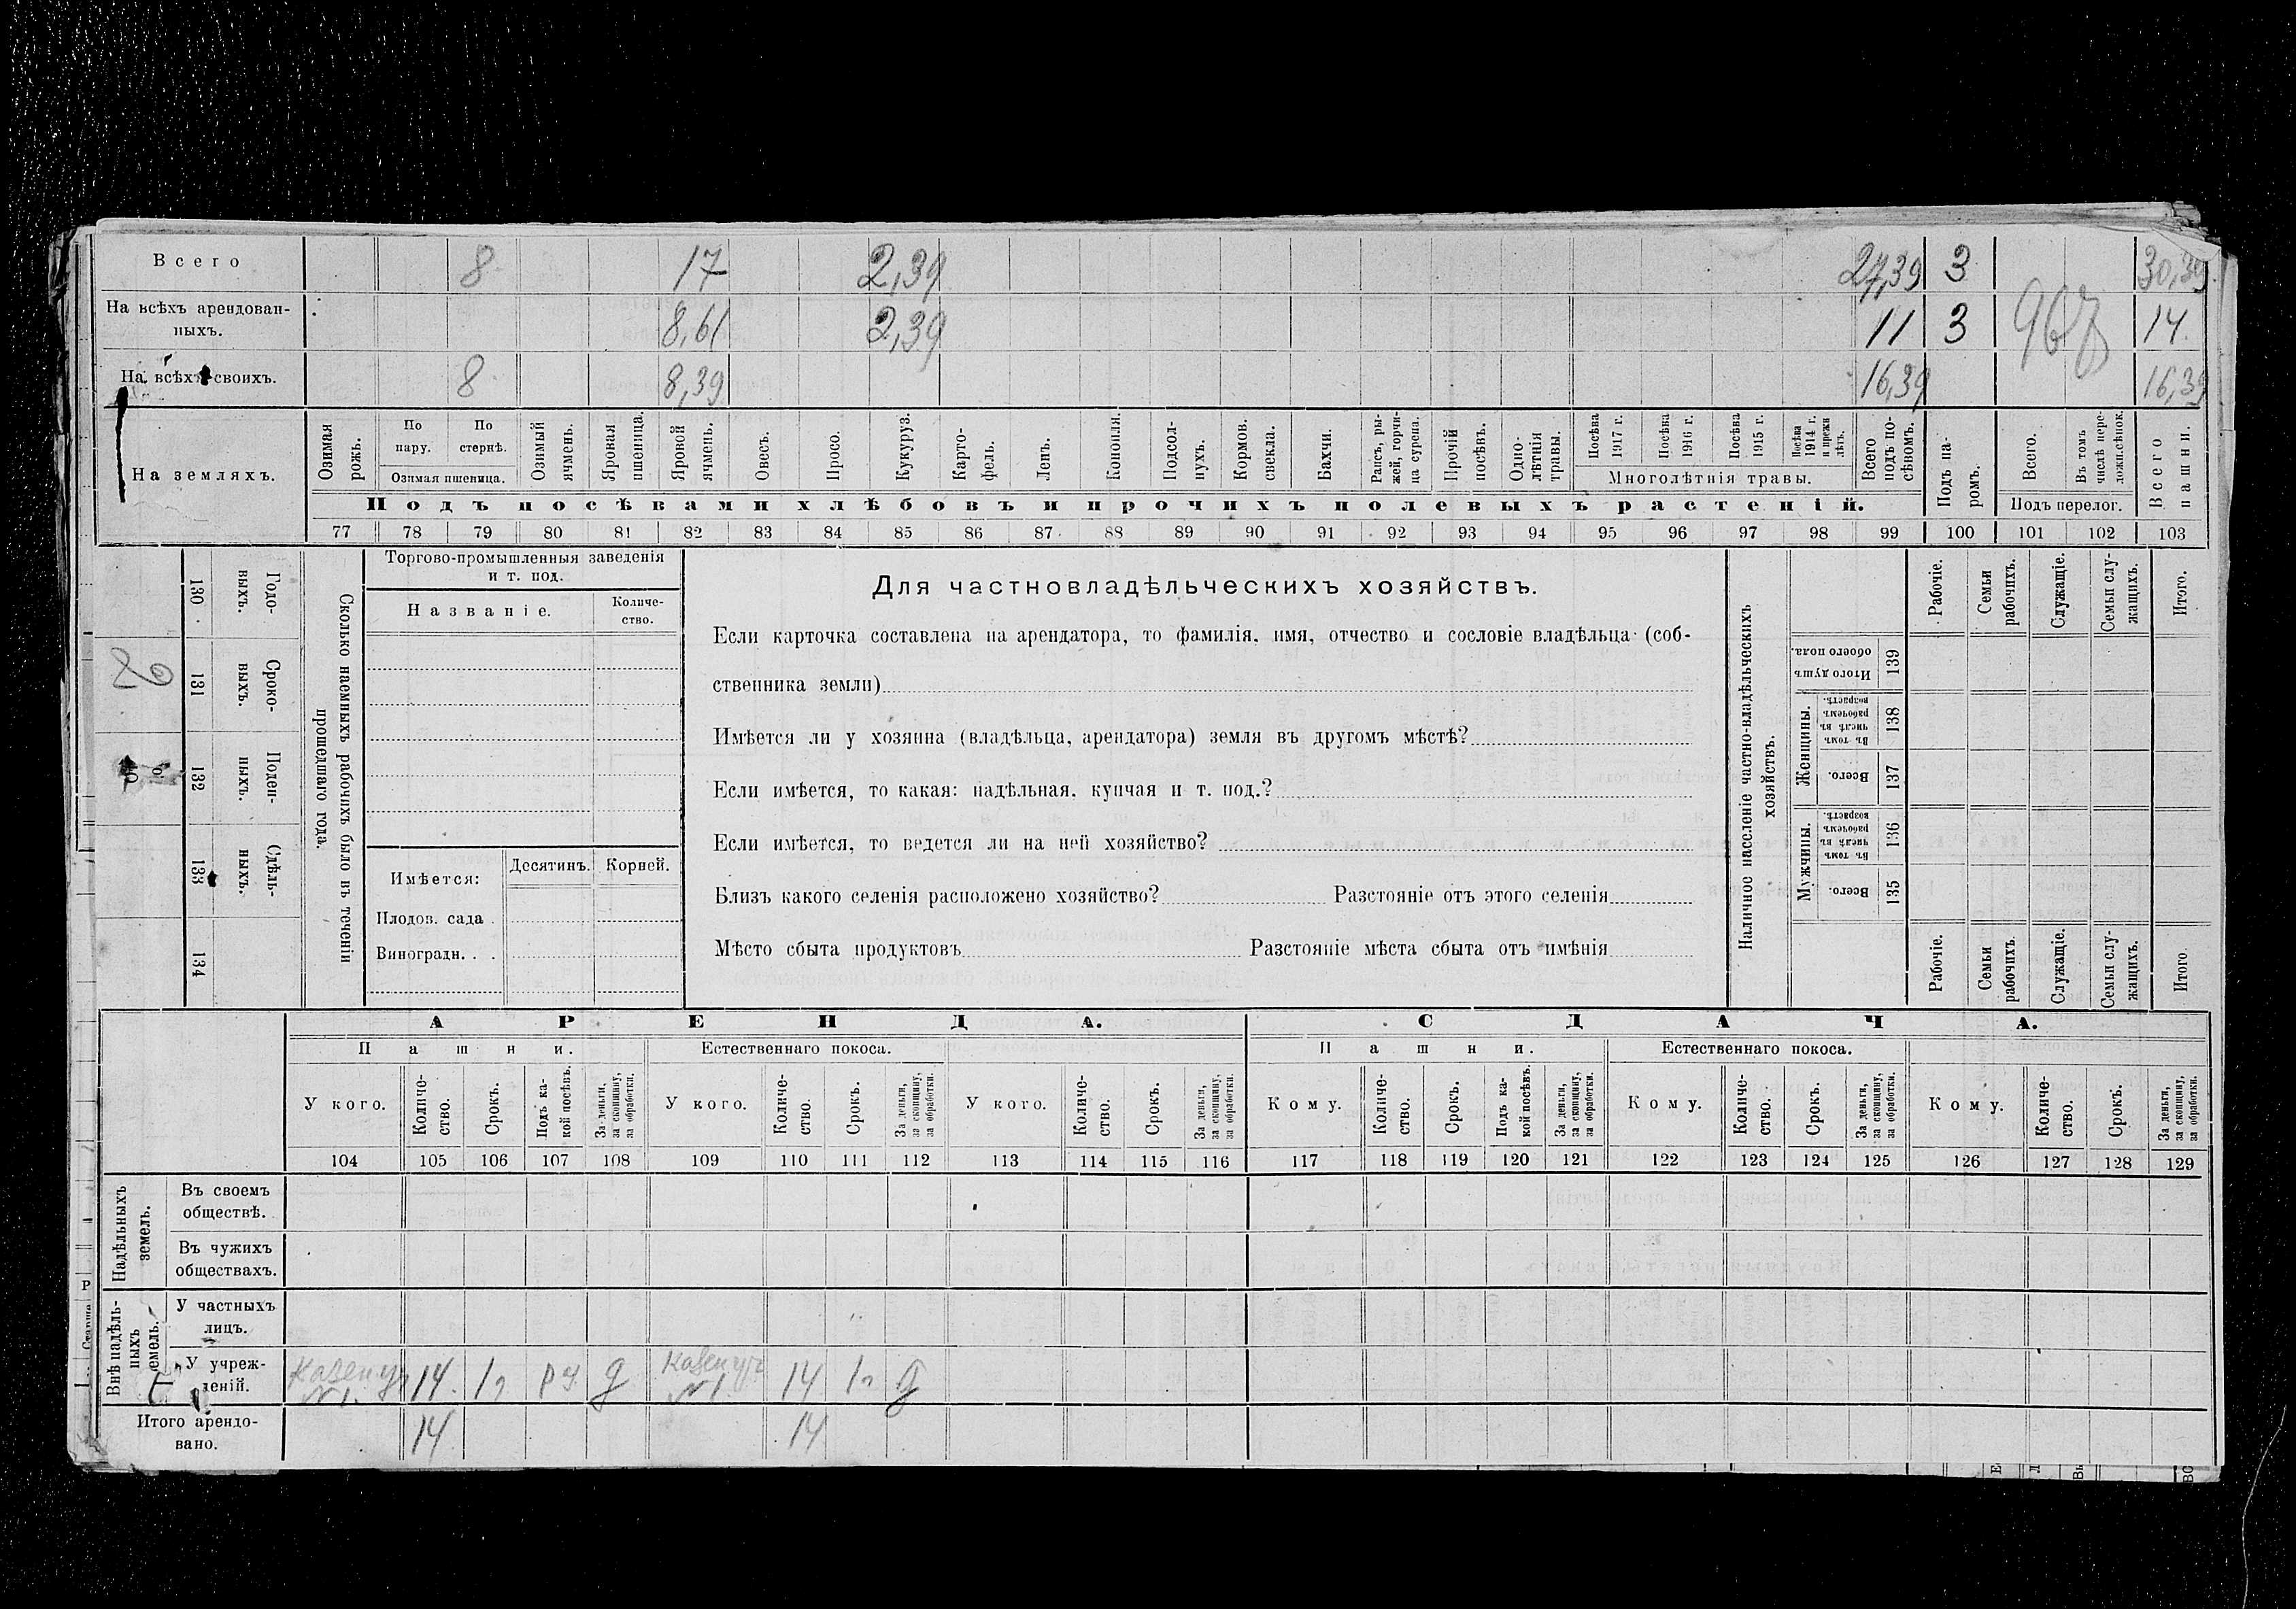 Всего 8 17 2,39 27,39 3 30,39
На всѣхъ арендован-
ныхъ. 8,61 2,39 11 3 967 14.
На всѣхъ своихъ. 8 8,39 16,39 16,39
На земляхъ.
Озимая рожь.
По пару.
По стернѣ.
Озимая пшеница.
Озимый ячмень.
Яровая пшеница.
Яровой ячмень.
Овесъ.
Просо.
Кукуруз.
Карто-
фель.
Ленъ.
Конопля.
Подсол-
нухъ.
Кормов. свекла.
Бахчи.
Рапсъ, ры-
жей, горчи-
ца сурепа.
Прочій посѣвъ.
Одно-
лѣтнія травы.
Посѣва 1917 г.
Посѣва 1916 г.
Посѣва 1915 г.
Посѣва 1914 г. и прежн лѣтъ.
Многолѣтнія травы.
Всего подъ по-
сѣвомъ.
Подъ па-
ромъ.
Всего.
Въ томъ числѣ пере-
Подъ перелог.
Всего пашни.
Подъ посѣвами хлѣбовъ и прочихъ полевыхъ растеній.
77 78 79 80 81 82 83 84 85 86 87 88 89 90 91 92 93 94 95 96 97 98 99 100 101 102 103
Годо-
выхъ.
130
Сроко-
выхъ.
131
Поден-
ныхъ.
132
Сдѣль-
ныхъ.
133
134
Сколько наемныхъ рабочихъ было въ теченіи
прошедшаго года.
Торгово-промышленныя заведенія
и т. под.
Названіе.
Количе-
ство.
Имѣется:
Десятинъ.
Корней.
Плодов. сада
Виноградн.
Для частновладѣльческихъ хозяйствъ.
Если карточка составлена на арендатора, то фамилія, имя, отчество и сословіе владѣльца (соб-
ственника земли)
Имѣется ли у хозяина (владѣльца, арендатора) земля въ другомъ мѣстѣ?
Если имѣется, то какая: надѣльная, купчая и т. под.?
Если имѣется, то ведется ли на ней хозяйство?
Близъ какого селенія расположено хозяйство? Разстояніе отъ этого селенія
Мѣсто сбыта продуктовъ Разстояніе мѣста сбыта отъ имѣнія
Наличное населеніе частно-владѣльческихъ
хозяйствъ.
Рабочіе.
Семьи рабочихъ.
Служащіе.
Семьи слу-
жащихъ.
Итого.
Итого душъ обоего пола.
139
Женщины.
Въ томъ числѣ въ рабочемъ возрастѣ.
138
Всего.
137
Мужчины.
Въ томъ числѣ въ рабочемъ возрастѣ.
136
Всего.
135
Рабочіе.
Семьи рабочихъ.
Служащіе.
Семьи слу-
жащихъ.
Итого
АРЕНДА. СДАЧА.
Пашни. Естественнаго покоса. Пашни. Естественнаго покоса.
У кого.
Количе-
ство.
Срокъ.
Подъ ка-
кой посѣвъ.
За деньги, за скопщину, за обработки.
У кого.
Количе-
ство.
Срокъ.
За деньги, за скопщину, за обработки.
У кого.
Количе-
ство.
Срокъ.
За деньги, за скопщину, за обработки.
Кому.
Количе-
ство.
Срокъ.
Подъ ка-
кой посѣвъ.
За деньги, за скопщину, за обработки.
Кому.
Количе-
ство.
Срокъ.
За деньги, за скопщину, за обработки.
Кому.
Количе-
ство.
Срокъ.
За деньги, за скопщину, за обработки.
104 105 106 107 108 109 110 111 112 113 114 115 116 117 118 119 120 121 122 123 124 125 126 127 128 129
Надѣльныхъ земель.
Въ своемъ
обществѣ.
Въ чужихъ
обществахъ.
Внѣ надѣль-
ныхъ
У частныхъ
лицъ.
У учреж-
деній.
14. 14
№1. №1.
Итого арендо-
вано. 14 14